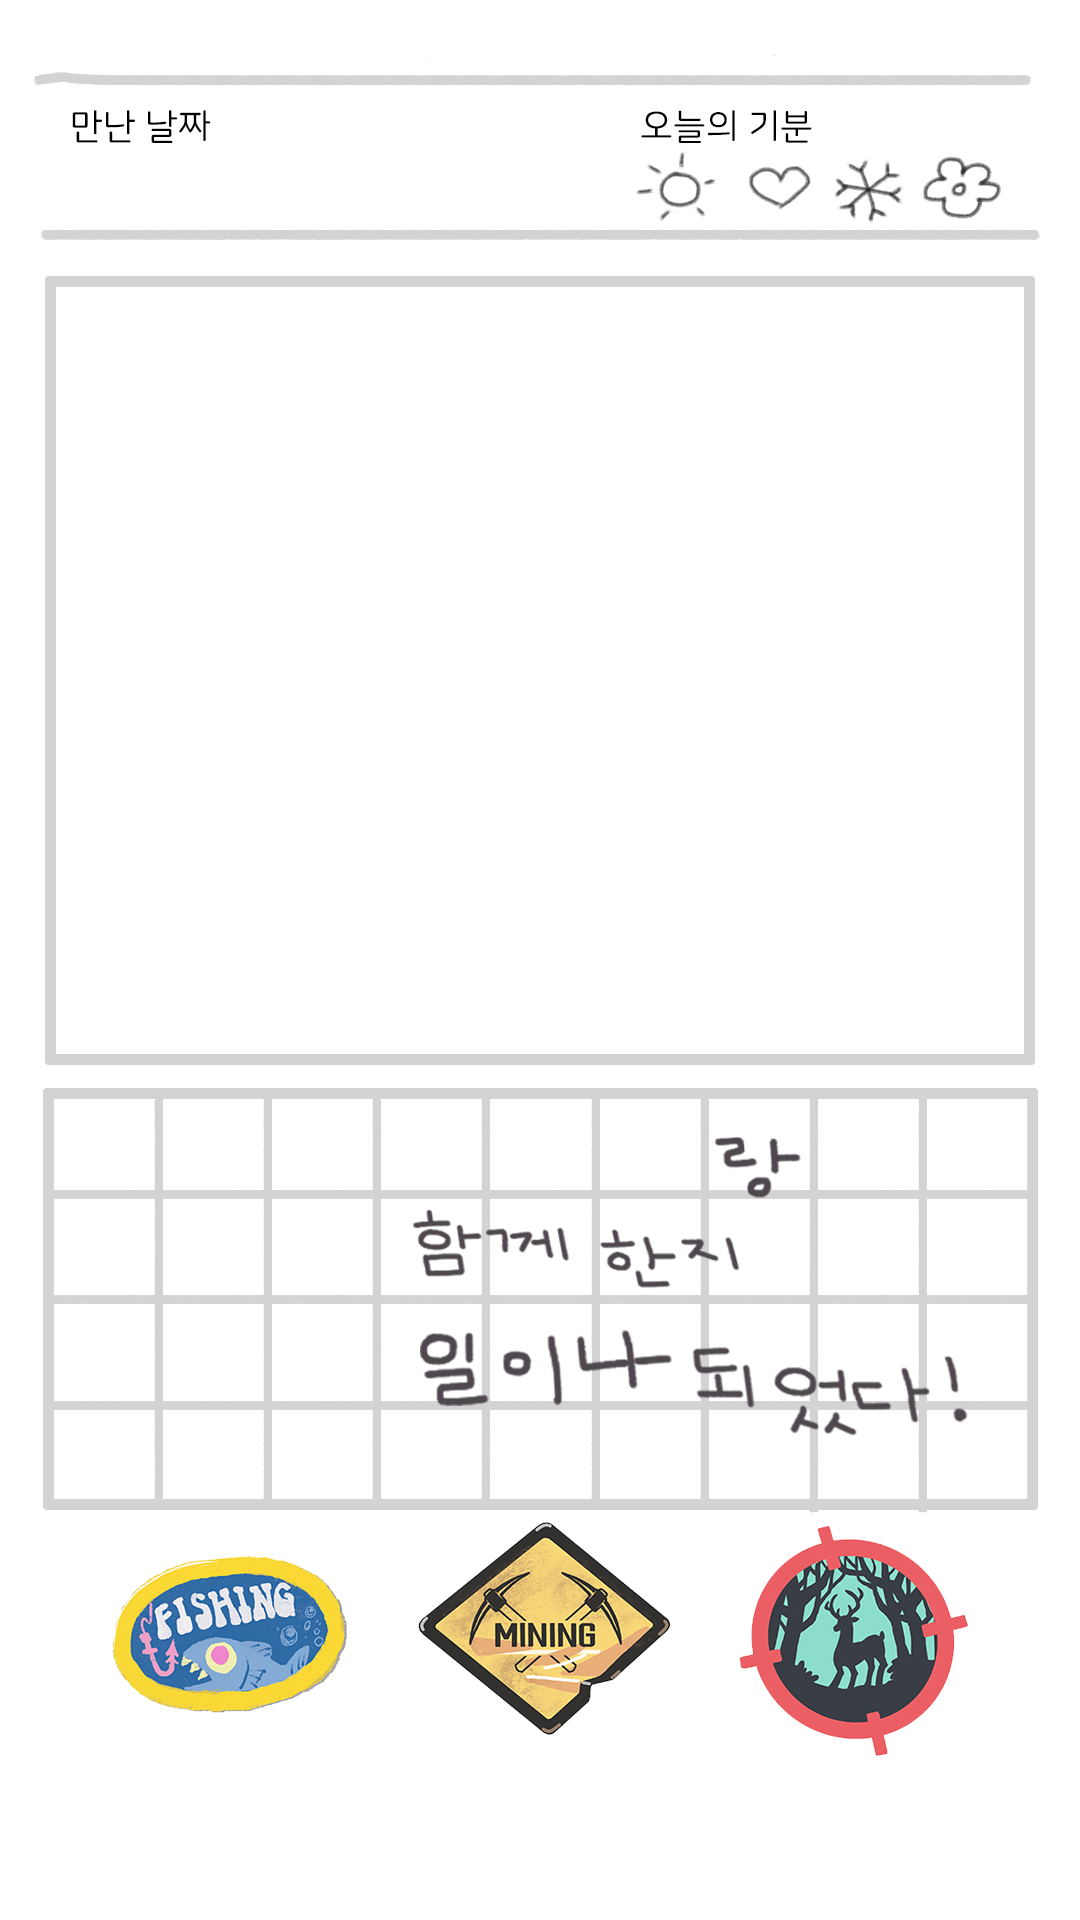 만난 날짜
오늘의 기분
랑
함께 한지
일이나 되었다!
FISHING
MINING